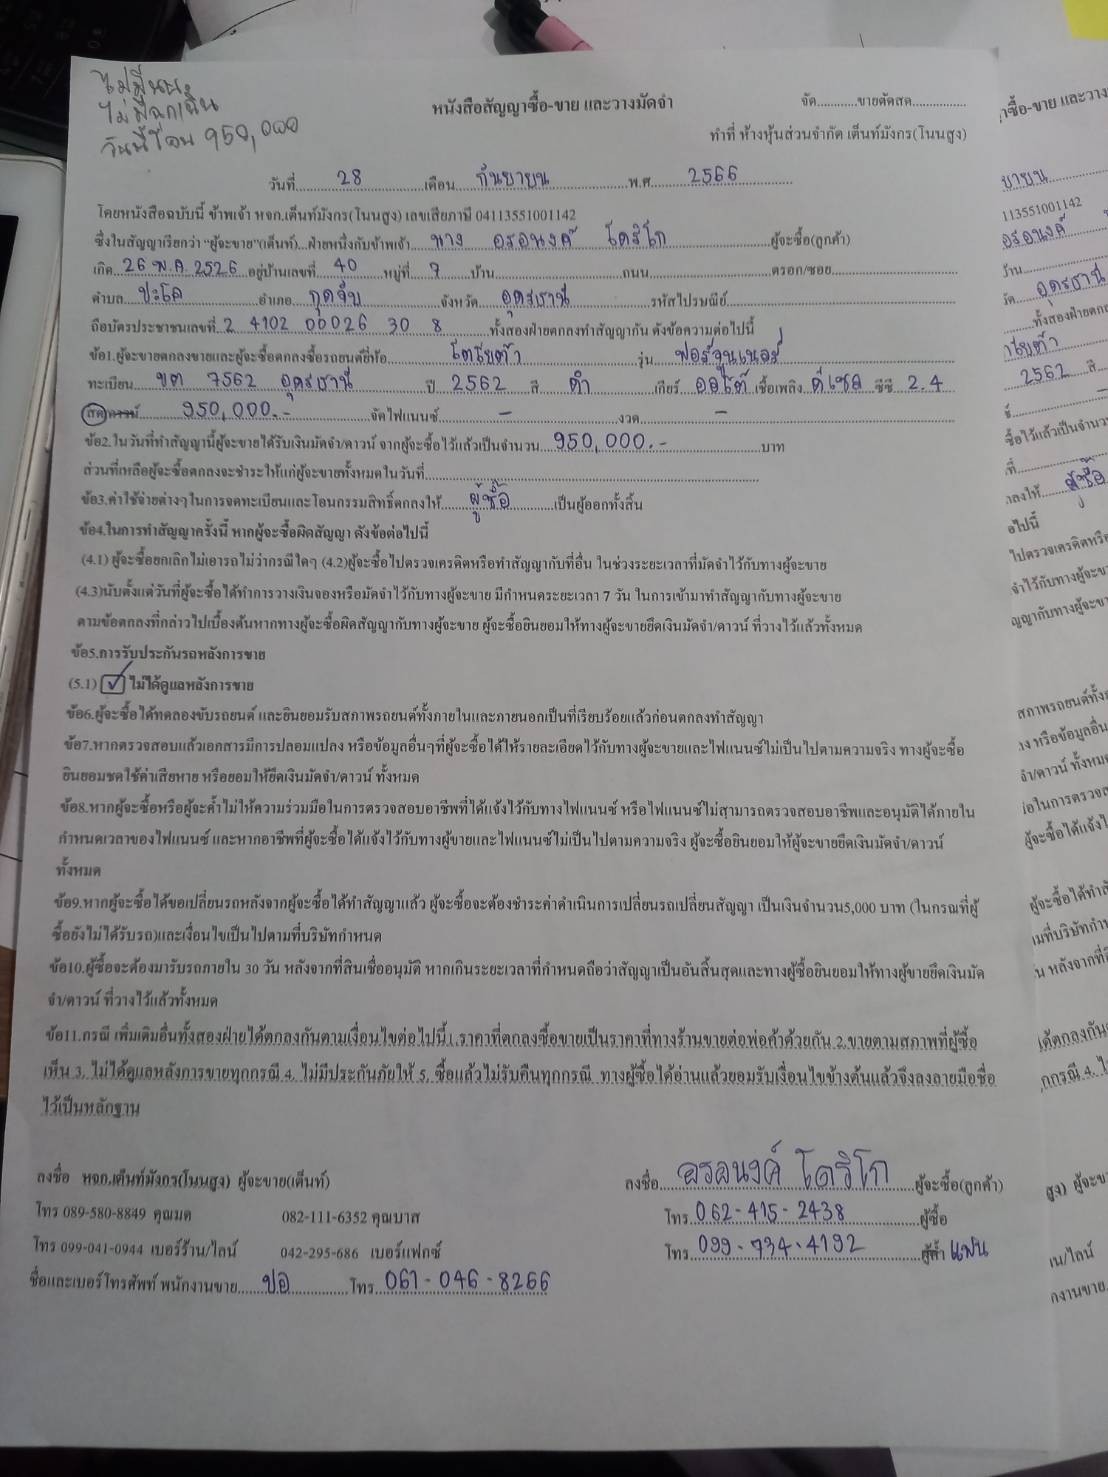 ไม่มีนาย
ไม่มีฉุกเฉิน
วันนี้โอน 950,000
หนังสือสัญญาซื้อ-ขาย และวางมัดจำ
จัด............ขายตัดสด................
ทำที่ ห้างหุ้นส่วนจำกัด เต็นท์มังกร(โนนสูง)
วันที่ 28 เดือน กันยายน พ.ศ. 2566
โดยหนังสือฉบับนี้ ข้าพเจ้า หจก.เต็นท์มังกร(โนนสูง) เลขเสียภาษี 04113551001142
ซึ่งในสัญญาเรียกว่า "ผู้จะขาย"(เต็นท์)...ฝ่ายหนึ่งกับข้าพเจ้า นาง อรอนงค์ โคริโก ผู้จะซื้อ(ลูกค้า)
เกิด 26 พ.ค. 2526 อยู่บ้านเลขที่ 40 หมู่ที่ 7 บ้าน ถนน ตรอก/ซอย
ตำบล ปะโค อำเภอ กุดจับ จังหวัด อุดรธานี รหัสไปรษณีย์
ถือบัตรประชาชนเลขที่ 2 4102 00026 30 8 ทั้งสองฝ่ายตกลงทำสัญญากัน ดังข้อความต่อไปนี้
ข้อ1.ผู้จะขายตกลงขายและผู้จะซื้อตกลงซื้อรถยนต์ยี่ห้อ โตโยต้า รุ่น ฟอร์จูนเนอร์
ทะเบียน ขต 7562 อุดรธานี ปี 2562 สี ดำ เกียร์ ออโต้ เชื้อเพลิง ดีเซล ซีซี 2.4
สด/ดาวน์ 950,000.- จัดไฟแนนซ์ - งวด -
ข้อ2.ในวันที่ทำสัญญานี้ผู้จะขายได้รับเงินมัดจำ/ดาวน์ จากผู้จะซื้อไว้แล้วเป็นจำนวน 950,000.- บาท
ส่วนที่เหลือผู้จะซื้อตกลงจะชำระให้แก่ผู้จะขายทั้งหมดในวันที่
ข้อ3.ค่าใช้จ่ายต่างๆในการจดทะเบียนและโอนกรรมสิทธิ์ตกลงให้ ผู้ซื้อ เป็นผู้ออกทั้งสิ้น
ข้อ4.ในการทำสัญญาครั้งนี้ หากผู้จะซื้อผิดสัญญา ดังข้อต่อไปนี้
(4.1) ผู้จะซื้อยกเลิกไม่เอารถไม่ว่ากรณีใดๆ (4.2)ผู้จะซื้อไปตรวจเครดิตหรือทำสัญญากับที่อื่น ในช่วงระยะเวลาที่มัดจำไว้กับทางผู้จะขาย
(4.3)นับตั้งแต่วันที่ผู้จะซื้อได้ทำการวางเงินจองหรือมัดจำไว้กับทางผู้จะขาย มีกำหนดระยะเวลา 7 วัน ในการเข้ามาทำสัญญากับทางผู้จะขาย
ตามข้อตกลงที่กล่าวไปเบื้องต้นหากทางผู้จะซื้อผิดสัญญากับทางผู้จะขาย ผู้จะซื้อยินยอมให้ทางผู้จะขายยึดเงินมัดจำ/ดาวน์ ที่วางไว้แล้วทั้งหมด
ข้อ5.การรับประกันรถหลังการขาย
(5.1) ✓ ไม่ได้ดูแลหลังการขาย
ข้อ6.ผู้จะซื้อได้ทดลองขับรถยนต์ และยินยอมรับสภาพรถยนต์ทั้งภายในและภายนอกเป็นที่เรียบร้อยแล้วก่อนตกลงทำสัญญา
ข้อ7.หากตรวจสอบแล้วเอกสารมีการปลอมแปลง หรือข้อมูลอื่นๆที่ผู้จะซื้อได้ให้รายละเอียดไว้กับทางผู้จะขายและไฟแนนซ์ไม่เป็นไปตามความจริง ทางผู้จะซื้อ
ยินยอมชดใช้ค่าเสียหาย หรือยอมให้ยึดเงินมัดจำ/ดาวน์ ทั้งหมด
ข้อ8.หากผู้จะซื้อหรือผู้จะค้ำไม่ให้ความร่วมมือในการตรวจสอบอาชีพที่ได้แจ้งไว้กับทางไฟแนนซ์ หรือไฟแนนซ์ไม่สามารถตรวจสอบอาชีพและอนุมัติได้ภายใน
กำหนดเวลาของไฟแนนซ์ และหากอาชีพที่ผู้จะซื้อได้แจ้งไว้กับทางผู้ขายและไฟแนนซ์ไม่เป็นไปตามความจริง ผู้จะซื้อยินยอมให้ผู้จะขายยึดเงินมัดจำ/ดาวน์
ทั้งหมด
ข้อ9.หากผู้จะซื้อได้ขอเปลี่ยนรถหลังจากผู้จะซื้อได้ทำสัญญาแล้ว ผู้จะซื้อจะต้องชำระค่าดำเนินการเปลี่ยนรถเปลี่ยนสัญญา เป็นเงินจำนวน5,000 บาท (ในกรณีที่ผู้
ซื้อยังไม่ได้รับรถ)และเงื่อนไขเป็นไปตามที่บริษัทกำหนด
ข้อ10.ผู้ซื้อจะต้องมารับรถภายใน 30 วัน หลังจากที่สินเชื่ออนุมัติ หากเกินระยะเวลาที่กำหนดถือว่าสัญญาเป็นอันสิ้นสุดและทางผู้ซื้อยินยอมให้ทางผู้ขายยึดเงินมัด
จำ/ดาวน์ ที่วางไว้แล้วทั้งหมด
ข้อ11.กรณี เพิ่มเติมอื่นทั้งสองฝ่ายได้ตกลงกันตามเงื่อนไขต่อไปนี้ 1.ราคาที่ตกลงซื้อขายเป็นราคาที่ทางร้านขายต่อพ่อค้าด้วยกัน 2.ขายตามสภาพที่ผู้ซื้อ
เห็น 3. ไม่ได้ดูแลหลังการขายทุกกรณี 4. ไม่มีประกันภัยให้ 5. ซื้อแล้วไม่รับคืนทุกกรณี ทางผู้ซื้อได้อ่านแล้วยอมรับเงื่อนไขข้างต้นแล้วจึงลงลายมือชื่อ
ไว้เป็นหลักฐาน
ลงชื่อ หจก.เต็นท์มังกร(โนนสูง) ผู้จะขาย(เต็นท์)
ลงชื่อ อรอนงค์ โคริโก ผู้จะซื้อ(ลูกค้า)
โทร 089-580-8849 คุณมด 082-111-6352 คุณบาส
โทร 062-415-2438 ผู้ซื้อ
โทร 099-041-0944 เบอร์ร้าน/ไลน์ 042-295-686 เบอร์แฟกซ์
โทร 099-734-4192 ผู้ค้ำ แฟน
ชื่อและเบอร์โทรศัพท์ พนักงานขาย ปอ โทร 061-046-8266